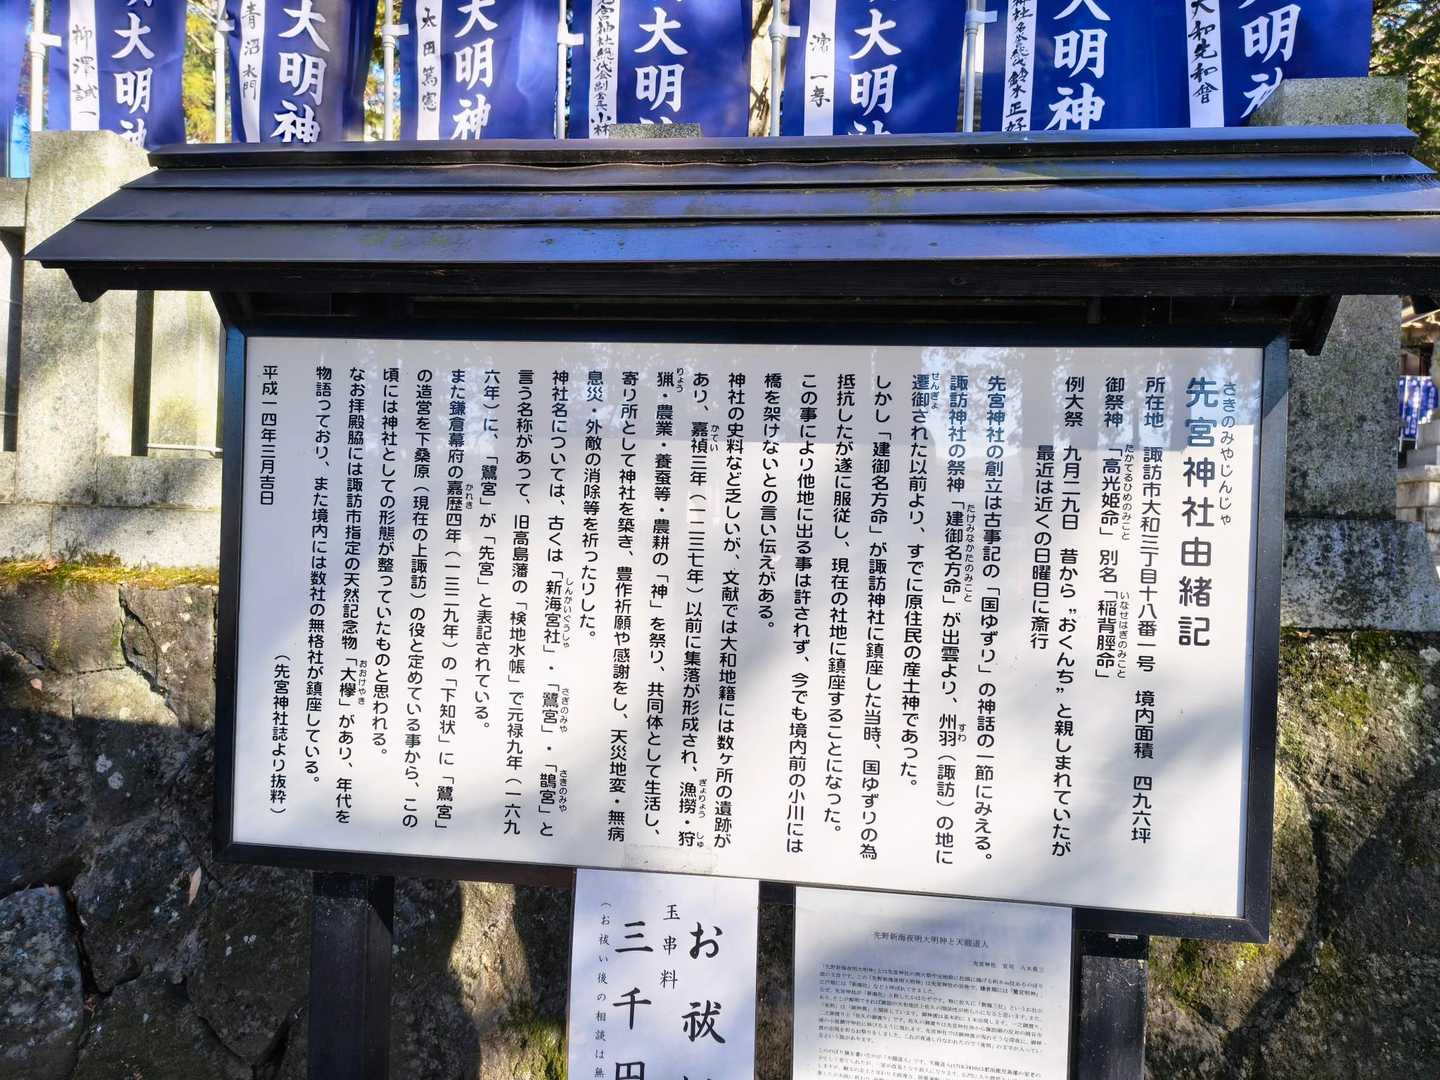 大明神
大和先和會
大明神
鈴木正好
大明神
一奉
大明神
先宮神社総代会副会長 小林
大明神
太田篤憲
大明神
青沼水門
大明神
柳澤誠一
先宮神社由緒記
さきのみやじんじゃ
所在地 諏訪市大和三丁目十八番一号 境内面積 四九六坪
御祭神 「高光姫命」別名「稲背脛命」
たかてるひめのみこと いなせはぎのみこと
例大祭 九月二九日 昔から〝おくんち〟と親しまれていたが
最近は近くの日曜日に斎行
先宮神社の創立は古事記の「国ゆずり」の神話の一節にみえる。
諏訪神社の祭神「建御名方命」が出雲より、州羽(諏訪)の地に
たけみなかたのみこと すわ
遷御された以前より、すでに原住民の産土神であった。
せんぎょ
しかし「建御名方命」が諏訪神社に鎮座した当時、国ゆずりの為
抵抗したが遂に服従し、現在の社地に鎮座することになった。
この事により他地に出る事は許されず、今でも境内前の小川には
橋を架けないとの言い伝えがある。
神社の史料など乏しいが、文献では大和地籍には数ヶ所の遺跡が
あり、嘉禎三年(一二三七年)以前に集落が形成され、漁撈・狩
かてい ぎょりょう しゅ
猟・農業・養蚕等・農耕の「神」を祭り、共同体として生活し、
りょう
寄り所として神社を築き、豊作祈願や感謝をし、天災地変・無病
息災・外敵の消除等を祈ったりした。
神社名については、古くは「新海宮社」・「鷺宮」・「鵲宮」と
しんかいぐうしゃ さぎのみや さきのみや
言う名称があって、旧高島藩の「検地水帳」で元禄九年(一六九
六年)に、「鷺宮」が「先宮」と表記されている。
また鎌倉幕府の嘉歴四年(一三二九年)の「下知状」に「鷺宮」
かれき
の造営を下桑原(現在の上諏訪)の役と定めている事から、この
頃には神社としての形態が整っていたものと思われる。
なお拝殿脇には諏訪市指定の天然記念物「大欅」があり、年代を
おおけやき
物語っており、また境内には数社の無格社が鎮座している。
(先宮神社誌より抜粋)
平成一四年三月吉日
お祓
玉串料
三千円
(お祓い後の相談は無
先野新海夜明大明神と天龍道人